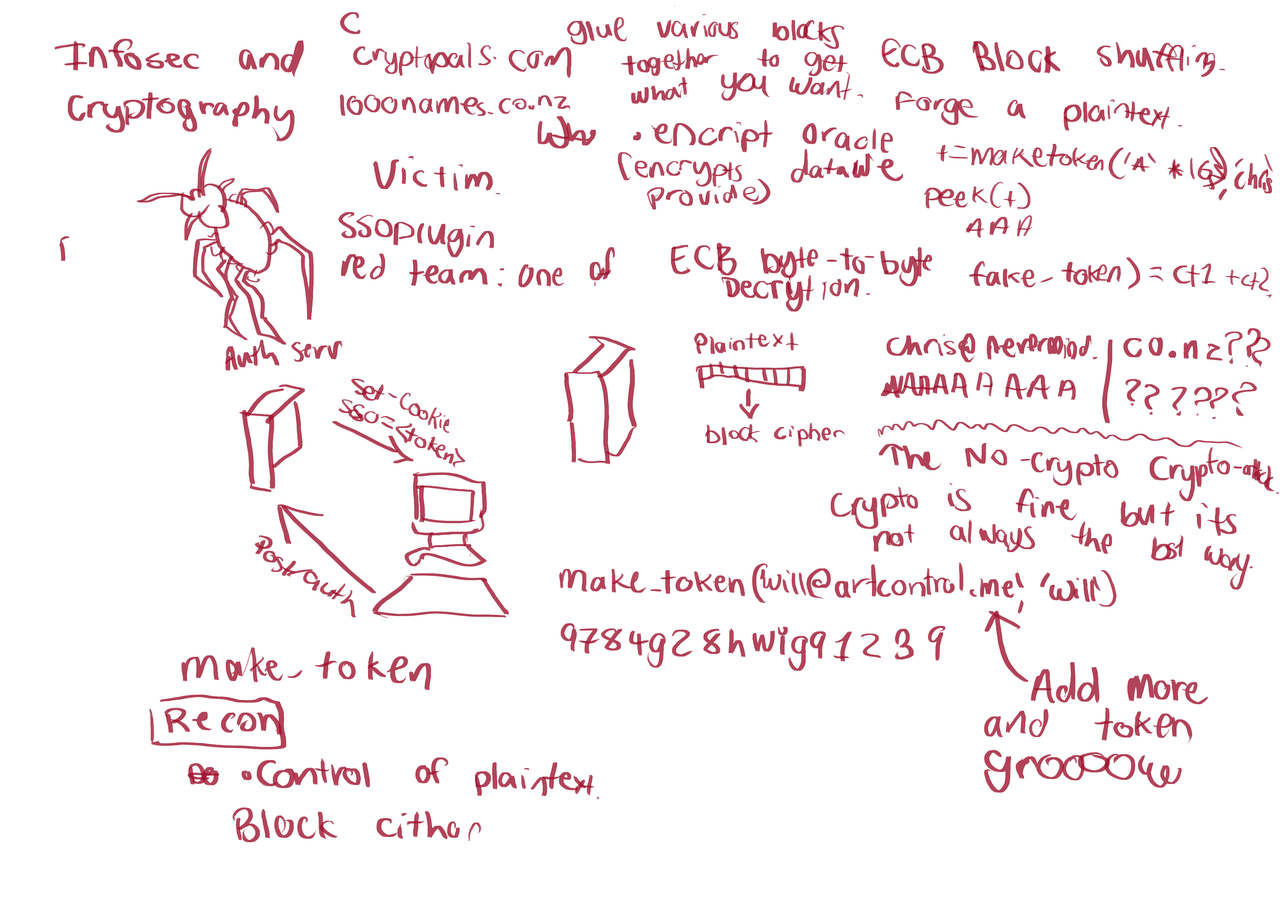 Infosec and
Cryptography
C
Cryptopals.com
1000names.co.nz
Victim
SSOplugin
red team: one of
glue various blocks
together to get
what you want.
• encript oracle
(encrypts data we
provide)
ECB byte-to-byte
Decrytion.
ECB Block shuffling.
Forge a plaintext.
t=maketoken('A' *16), 'chris'
peek(t)
AAA
fake_token) = ct1 + ct2
Auth serv
Set-Cookie
SSO=<token>
Post/auth
Plaintext
block cipher
chris@nevermind. | co.nz??
AAAAAAAA | ??????
The No-Crypto Crypto-attack.
Crypto is fine but its
not always the best way.
make_token('will@artcontrol.me', 'will')
9784g28hwig91239
Add more
and token
grooooow
make_token
Recon
• Control of plaintext
Block cither